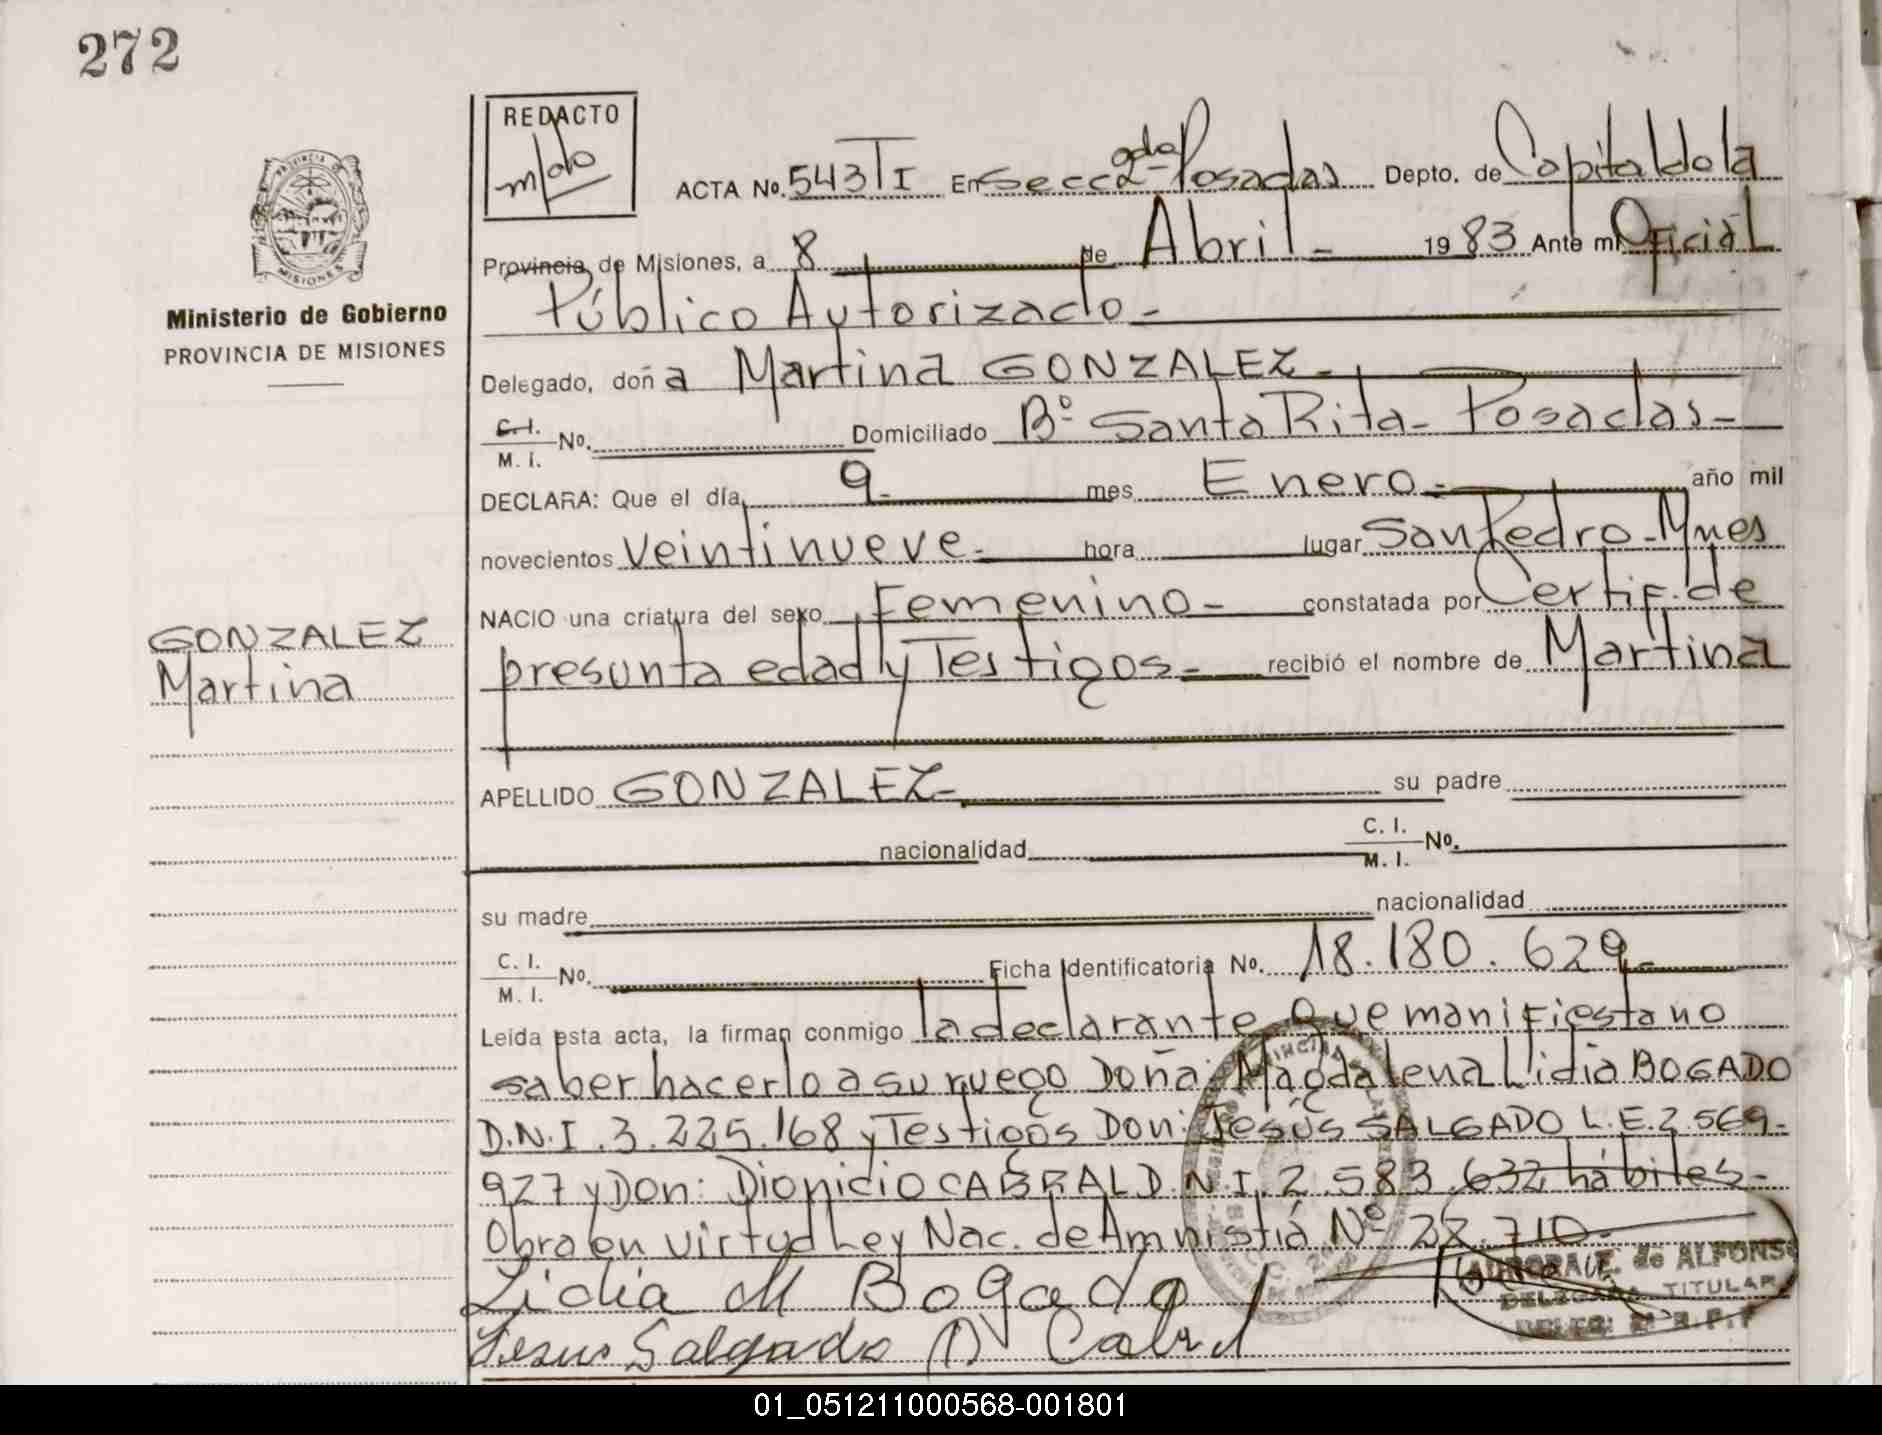 272
REDACTO
ACTA No. 543 T I En Secc 2gda - Posadas Depto. de Capital de la
Provincia de Misiones, a 8 de Abril - 1983 Ante mi Oficial
Público Autorizado -
Ministerio de Gobierno
PROVINCIA DE MISIONES
Delegado, doña Martina GONZALEZ -
C. I. / M. I. No. Domiciliado Bº Santa Rita - Posadas -
DECLARA: Que el día 9 - mes Enero - año mil
novecientos veintinueve - hora lugar San Pedro - Mnes
NACIO una criatura del sexo Femenino - constatada por Certif. de
presunta edad y Testigos - recibió el nombre de Martina
GONZALEZ
Martina
APELLIDO GONZALEZ - su padre
nacionalidad C. I. / M. I. No.
su madre nacionalidad
C. I. / M. I. No. Ficha Identificatoria No. 18.180.629 -
Leída esta acta, la firman conmigo la declarante que manifiesta no
saber hacerlo a su ruego Doña: Magdalena Lidia BOGADO
D.N.I. 3.225.168 y Testigos Don: Jesús SALGADO L.E. 2.569.
927 y Don: Dionicio CABRAL D.N.I. 2.583.632 hábiles -
Obra en virtud Ley Nac. de Amnistia Nº 22.710 -
Lidia M Bogado
Jesus Salgado D Cabral
AURORA E. de ALFONSO
DELEGADA TITULAR
01_051211000568-001801